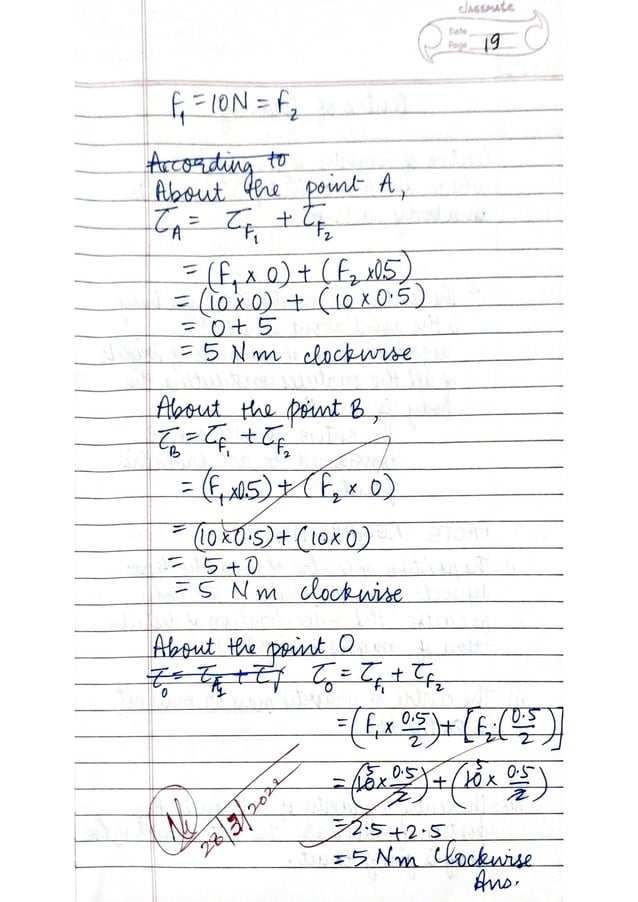 classmate
Date
Page 19
F₁ = 10N = F₂
According to
About the point A,
τ_A = τ_F₁ + τ_F₂
= (F₁ × 0) + (F₂ × 0.5)
= (10 × 0) + (10 × 0.5)
= 0 + 5
= 5 Nm clockwise
About the point B,
τ_B = τ_F₁ + τ_F₂
= (F₁ × 0.5) + (F₂ × 0)
= (10 × 0.5) + (10 × 0)
= 5 + 0
= 5 Nm clockwise
About the point O
τ₀ = τ_F₁ + τ_F₂
= (F₁ × 0.5/2) + [F₂ · (0.5/2)]
= (10 5 × 0.5/2) + (10 5 × 0.5/2)
= 2.5 + 2.5
= 5 Nm Clockwise
Ans.